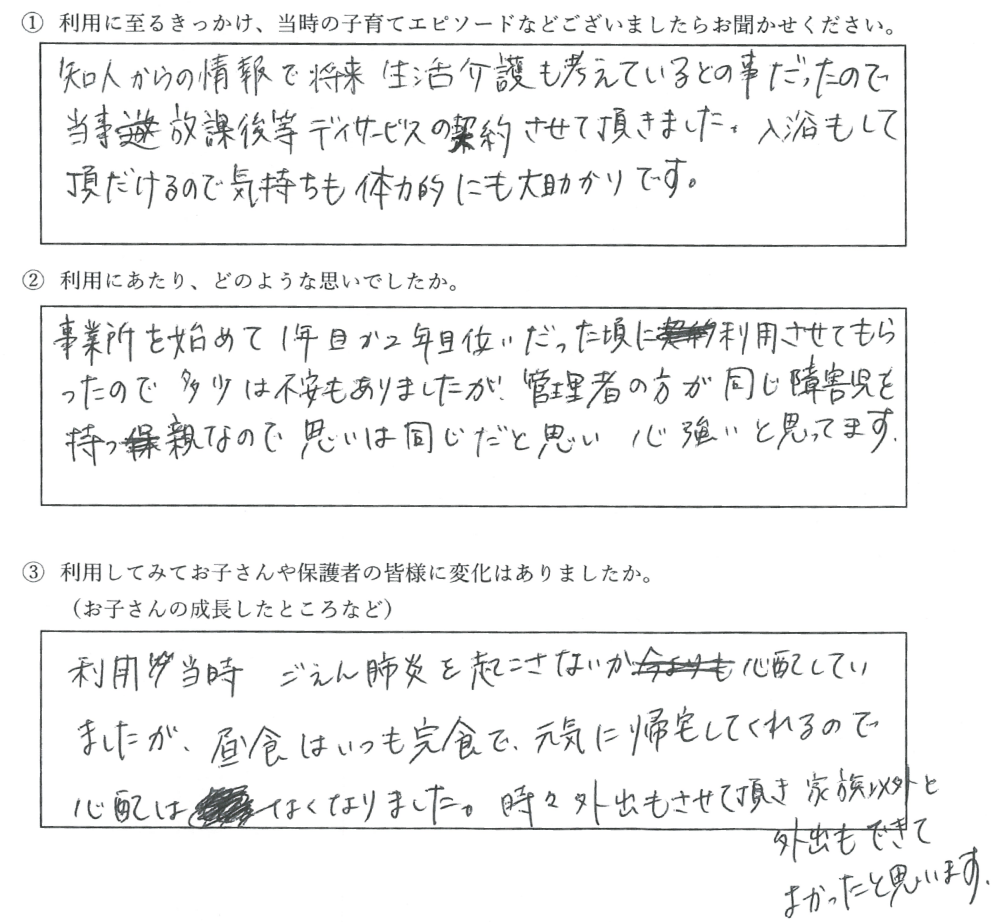 ① 利用に至るきっかけ、当時の子育てエピソードなどございましたらお聞かせください。
知人からの情報で将来 生活介護も考えているとの事だったので
当事 放課後等デイサービスの契約させて頂きました。入浴もして
頂だけるので気持ちも体力的にも大助かりです。
② 利用にあたり、どのような思いでしたか。
事業所を始めて1年目か2年目位いだった頃に利用させてもら
ったので多少は不安もありましたが、管理者の方が同じ障害児を
持つ親なので思いは同じだと思い 心強いと思ってます.
③ 利用してみてお子さんや保護者の皆様に変化はありましたか。
（お子さんの成長したところなど）
利用当時 ごえん肺炎を起こさないか心配してい
ましたが、昼食はいつも完食で、元気に帰宅してくれるので
心配はなくなりました。時々外出もさせて頂き 家族以外と
外出もできて
よかったと思います.